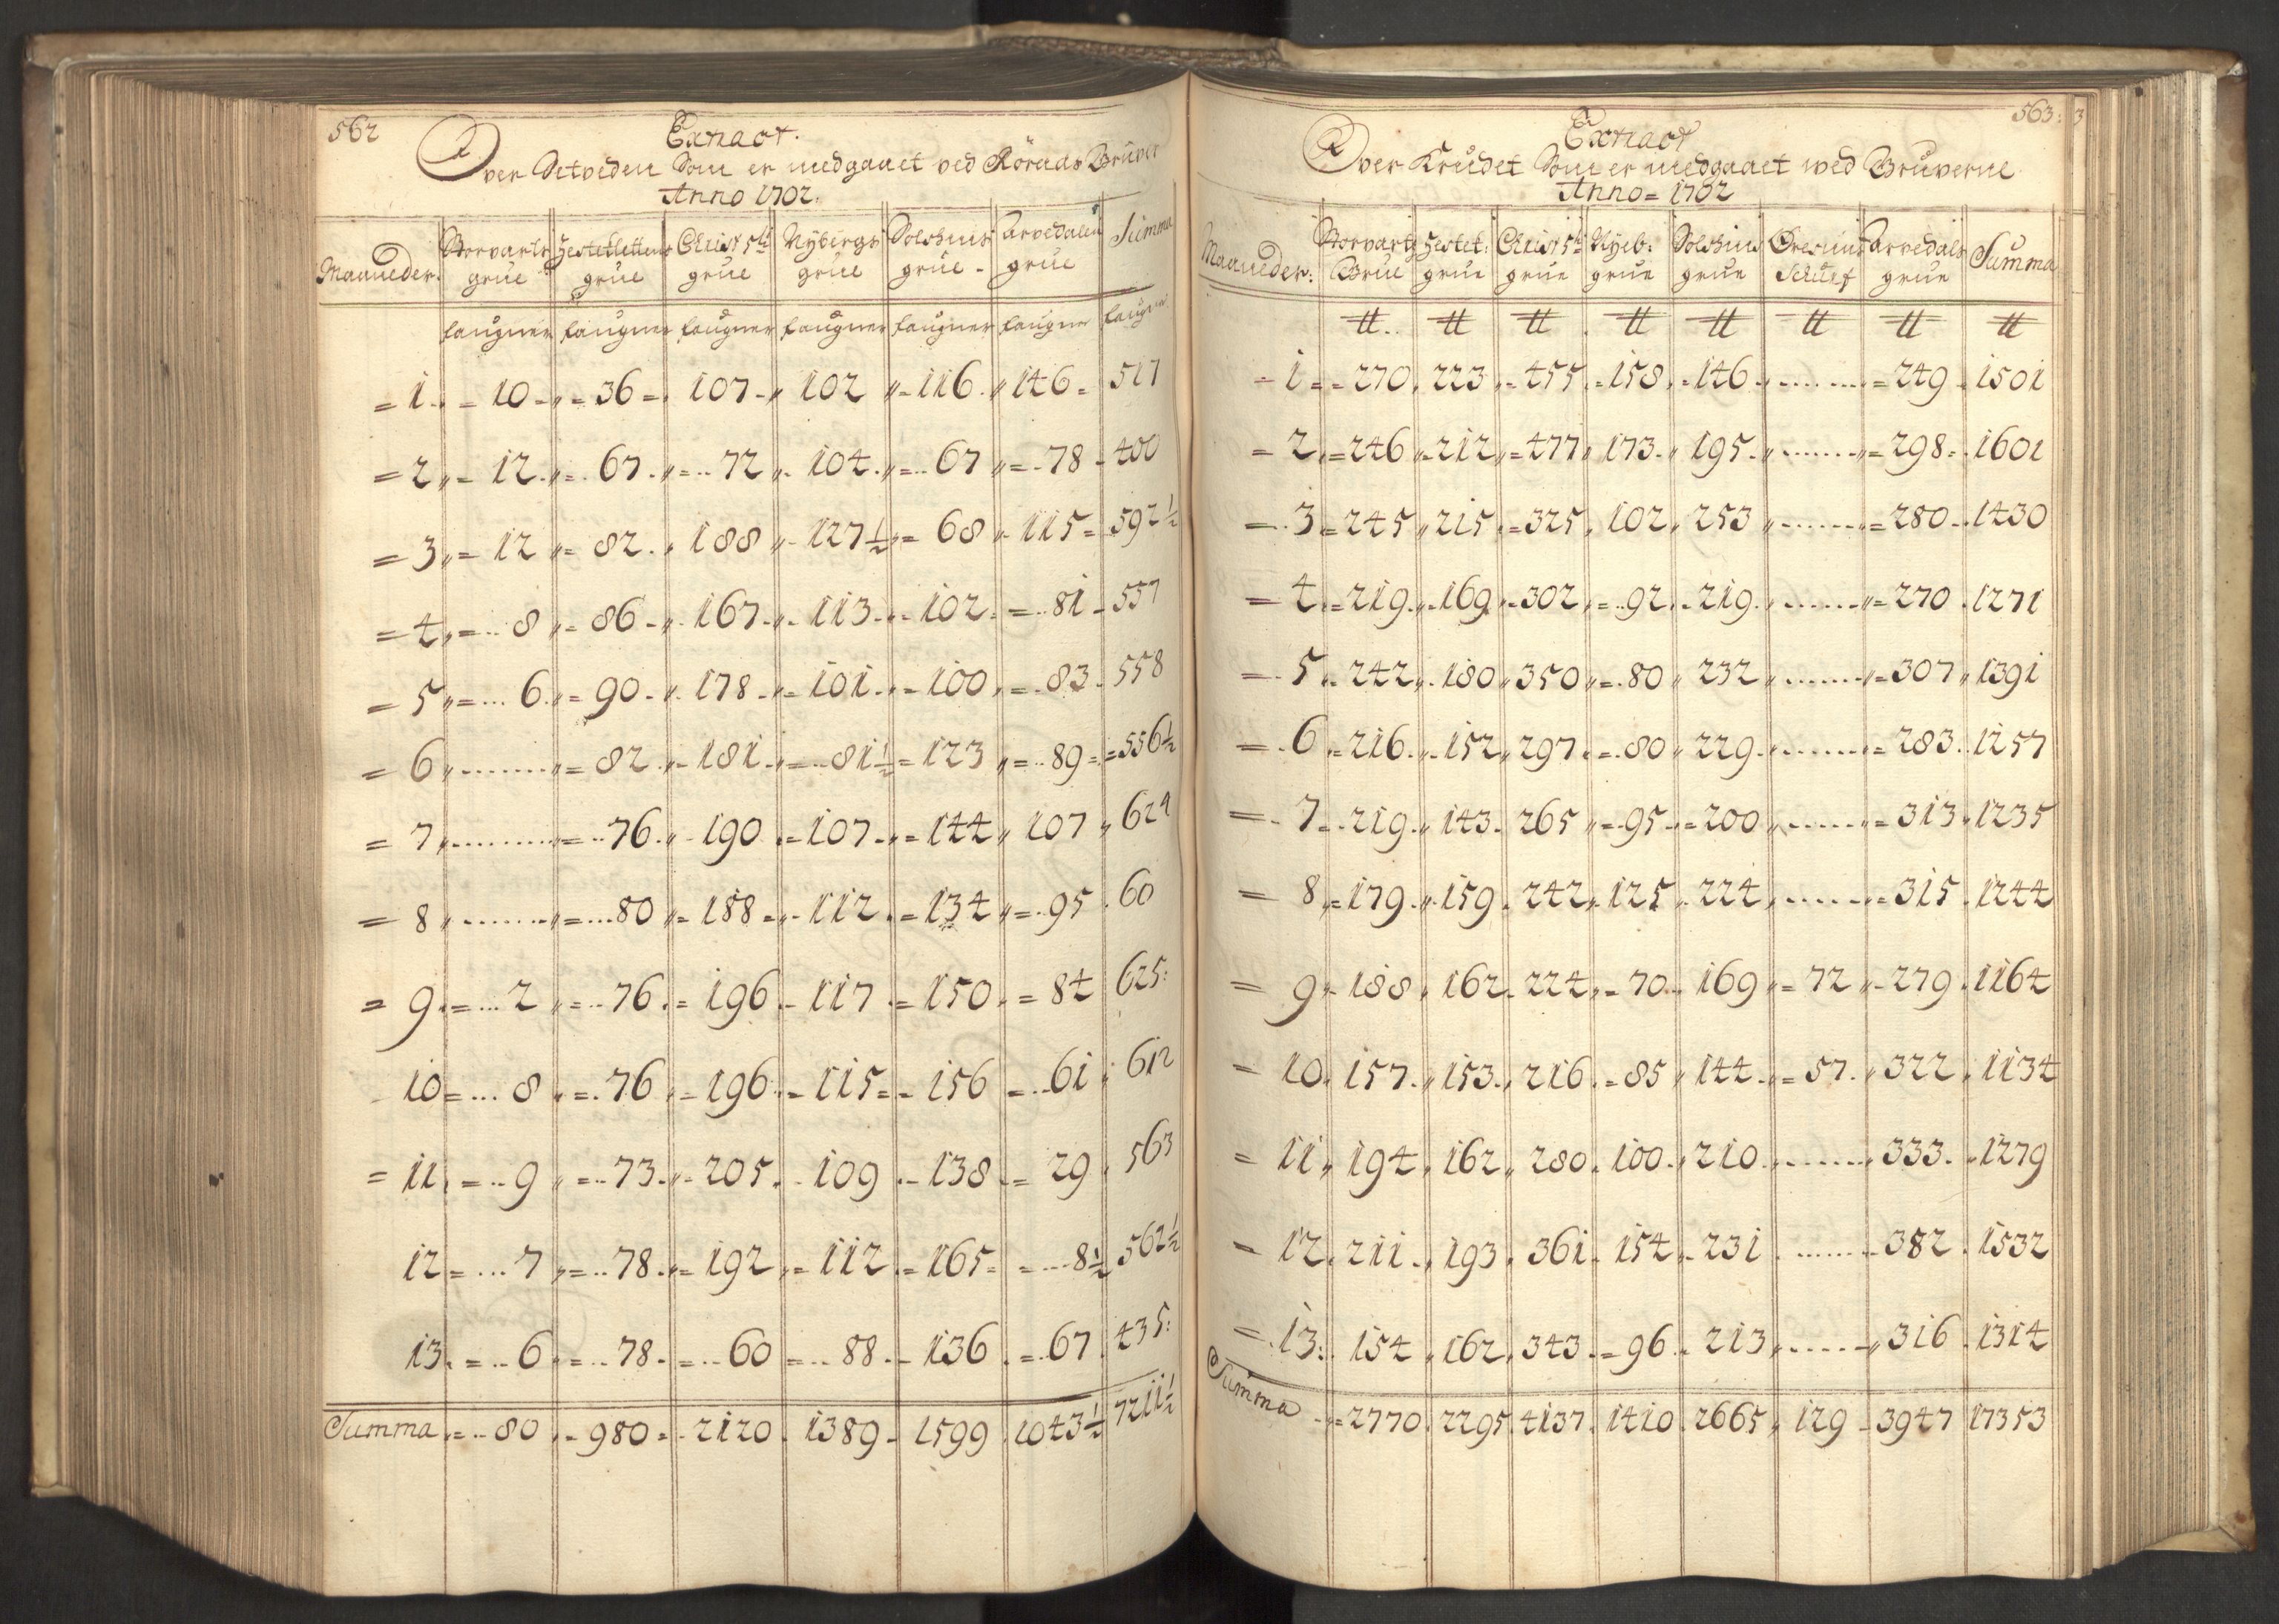 562
Extract.
Over Setveden Som er medgaaet ved Röraas Gruver
Anno 1702.
Maaneder. Storvarts grue Hestekletten grue Christ 5ti grue Nybergs grue Solskins grue Arvedalen grue Summa
faugner faugner faugner faugner faugner faugner faugner
= 1. = 10 = 36 = 107 102 116 146 = 517
= 2 = 12 = 67 = 72 104 = 67 = 78 400
= 3 = 12 = 82 188 127½ = 68 115 = 592½
= 4 = 8 = 86 167 113 102 = 81 557
= 5 = 6 = 90 178 = 101 = 100 = 83 558
= 6 ........ = 82 181 = 81½ = 123 = 89 = 556½
= 7 ........ = 76 190 = 107 = 144 107 624
= 8 ........ = 80 = 188 112 = 134 = 95 60
= 9 = 2 = 76 = 196 117 = 150 = 84 625:
10 = 8 = 76 = 196 = 115 = 156 = 61 612
= 11 = 9 = 73 205 109 138 = 29 563
12 = 7 = 78 = 192 = 112 = 165 = 8½ 562½
13. = 6 = 78 = 60 = 88 136 = 67 435:
Summa = 80 = 980 = 2120 1389 1599 1043½ 7211½
563: 3
Extract
Over Krudet Som er medgaaet wed Gruverne
Anno = 1702
Maaneder: Storvarts Grue Hestek: grue Christ 5ti grue Nyeb: grue Solskins grue Øresunds Schierf Arvedals grue Summa
℔ ℔ ℔ ℔ ℔ ℔ ℔ ℔
= 1 = 270 223 455 158 146 ........ = 249 1501
= 2 = 246 212 = 477 173 195 ........ = 298 1601
= 3 = 245 215 = 325 102 253 ........ = 280 1430
= 4 = 219 169 302 = 92 219 ........ = 270 1271
= 5 242 180 350 = 80 232 ........ = 307 1391
= 6 = 216 152 297 = 80 229 ........ = 283 1257
= 7 219 143 265 = 95 = 200 ........ = 313 1235
= 8 = 179 159 242 125 224 ........ = 315 1244
= 9 188 162 224 = 70 169 = 72 279 1164
= 10 157 153 216 = 85 144 = 57 322 1134
= 11 194 162 280 100 210 ........ 333 1279
= 12 211 193 361 154 231 ........ 382 1532
= 13: 154 162 343 = 96 213 ........ 316 1314
Summa = 2770 2295 4137 1410 2665 129 3947 17353